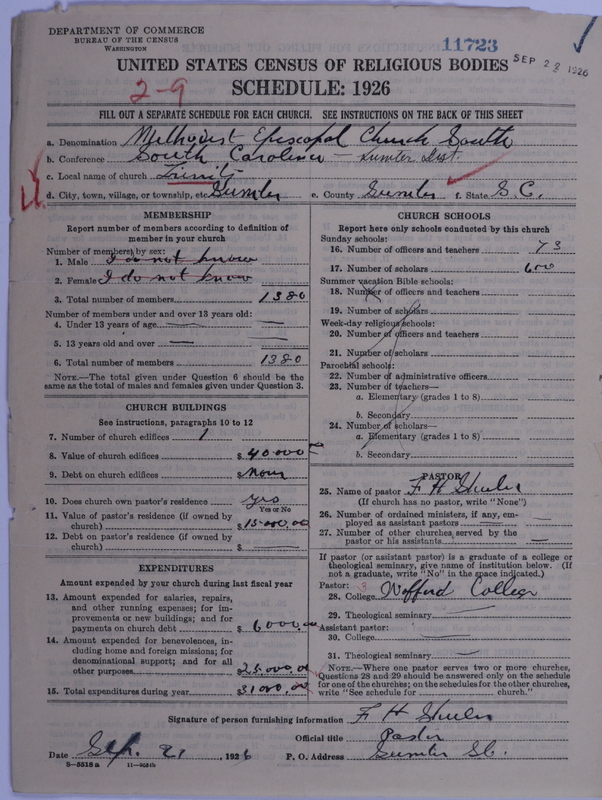 DEPARTMENT OF COMMERCE
BUREAU OF THE CENSUS
WASHINGTON
11723
SEP 22 1926
UNITED STATES CENSUS OF RELIGIOUS BODIES
2-9
SCHEDULE: 1926
FILL OUT A SEPARATE SCHEDULE FOR EACH CHURCH. SEE INSTRUCTIONS ON THE BACK OF THIS SHEET
a. Denomination Methodist Episcopal Church South
b. Conference South Carolina – Sumter Dist.
c. Local name of church Trinity
d. City, town, village, or township, etc. Sumter e. County Sumter f. State S.C.
MEMBERSHIP
Report number of members according to definition of member in your church
Number of members by sex:
1. Male I do not know
2. Female I do not know
3. Total number of members 1380
Number of members under and over 13 years old:
4. Under 13 years of age —
5. 13 years old and over —
6. Total number of members 1380
NOTE.—The total given under Question 6 should be the
same as the total of males and females given under Question 3.
CHURCH BUILDINGS
See instructions, paragraphs 10 to 12
7. Number of church edifices 1
8. Value of church edifices $ 40000
9. Debt on church edifices $ None
10. Does church own pastor's residence yes
Yes or No
11. Value of pastor's residence (if owned by
church) $ 15000.00
12. Debt on pastor's residence (if owned by
church) $ —
EXPENDITURES
Amount expended by your church during last fiscal year
13. Amount expended for salaries, repairs,
and other running expenses; for im-
provements or new buildings; and for
payments on church debt $ 6000.00
14. Amount expended for benevolences, in-
cluding home and foreign missions; for
denominational support; and for all
other purposes $ 25000.00
15. Total expenditures during year $ 31000.00
CHURCH SCHOOLS
Report here only schools conducted by this church
Sunday schools:
16. Number of officers and teachers 73
17. Number of scholars 600
Summer vacation Bible schools:
18. Number of officers and teachers
19. Number of scholars
Week-day religious schools:
20. Number of officers and teachers
21. Number of scholars
Parochial schools:
22. Number of administrative officers
23. Number of teachers—
a. Elementary (grades 1 to 8)
b. Secondary
24. Number of scholars—
a. Elementary (grades 1 to 8)
b. Secondary
PASTOR
25. Name of pastor F H Shuler
(If church has no pastor, write "None")
26. Number of ordained ministers, if any, em-
ployed as assistant pastors —
27. Number of other churches served by the
pastor or his assistants —
If pastor (or assistant pastor) is a graduate of a college or
theological seminary, give name of institution below. (If
not a graduate, write "No" in the space indicated.)
Pastor: 3
28. College Wofford College
29. Theological seminary —
Assistant pastor:
30. College —
31. Theological seminary —
NOTE.—Where one pastor serves two or more churches,
Questions 28 and 29 should be answered only on the schedule
for one of the churches; on the schedules for the other churches,
write "See schedule for church."
Signature of person furnishing information F H Shuler
Official title Pastor
Date Sep. 21, 1926 P. O. Address Sumter S.C.